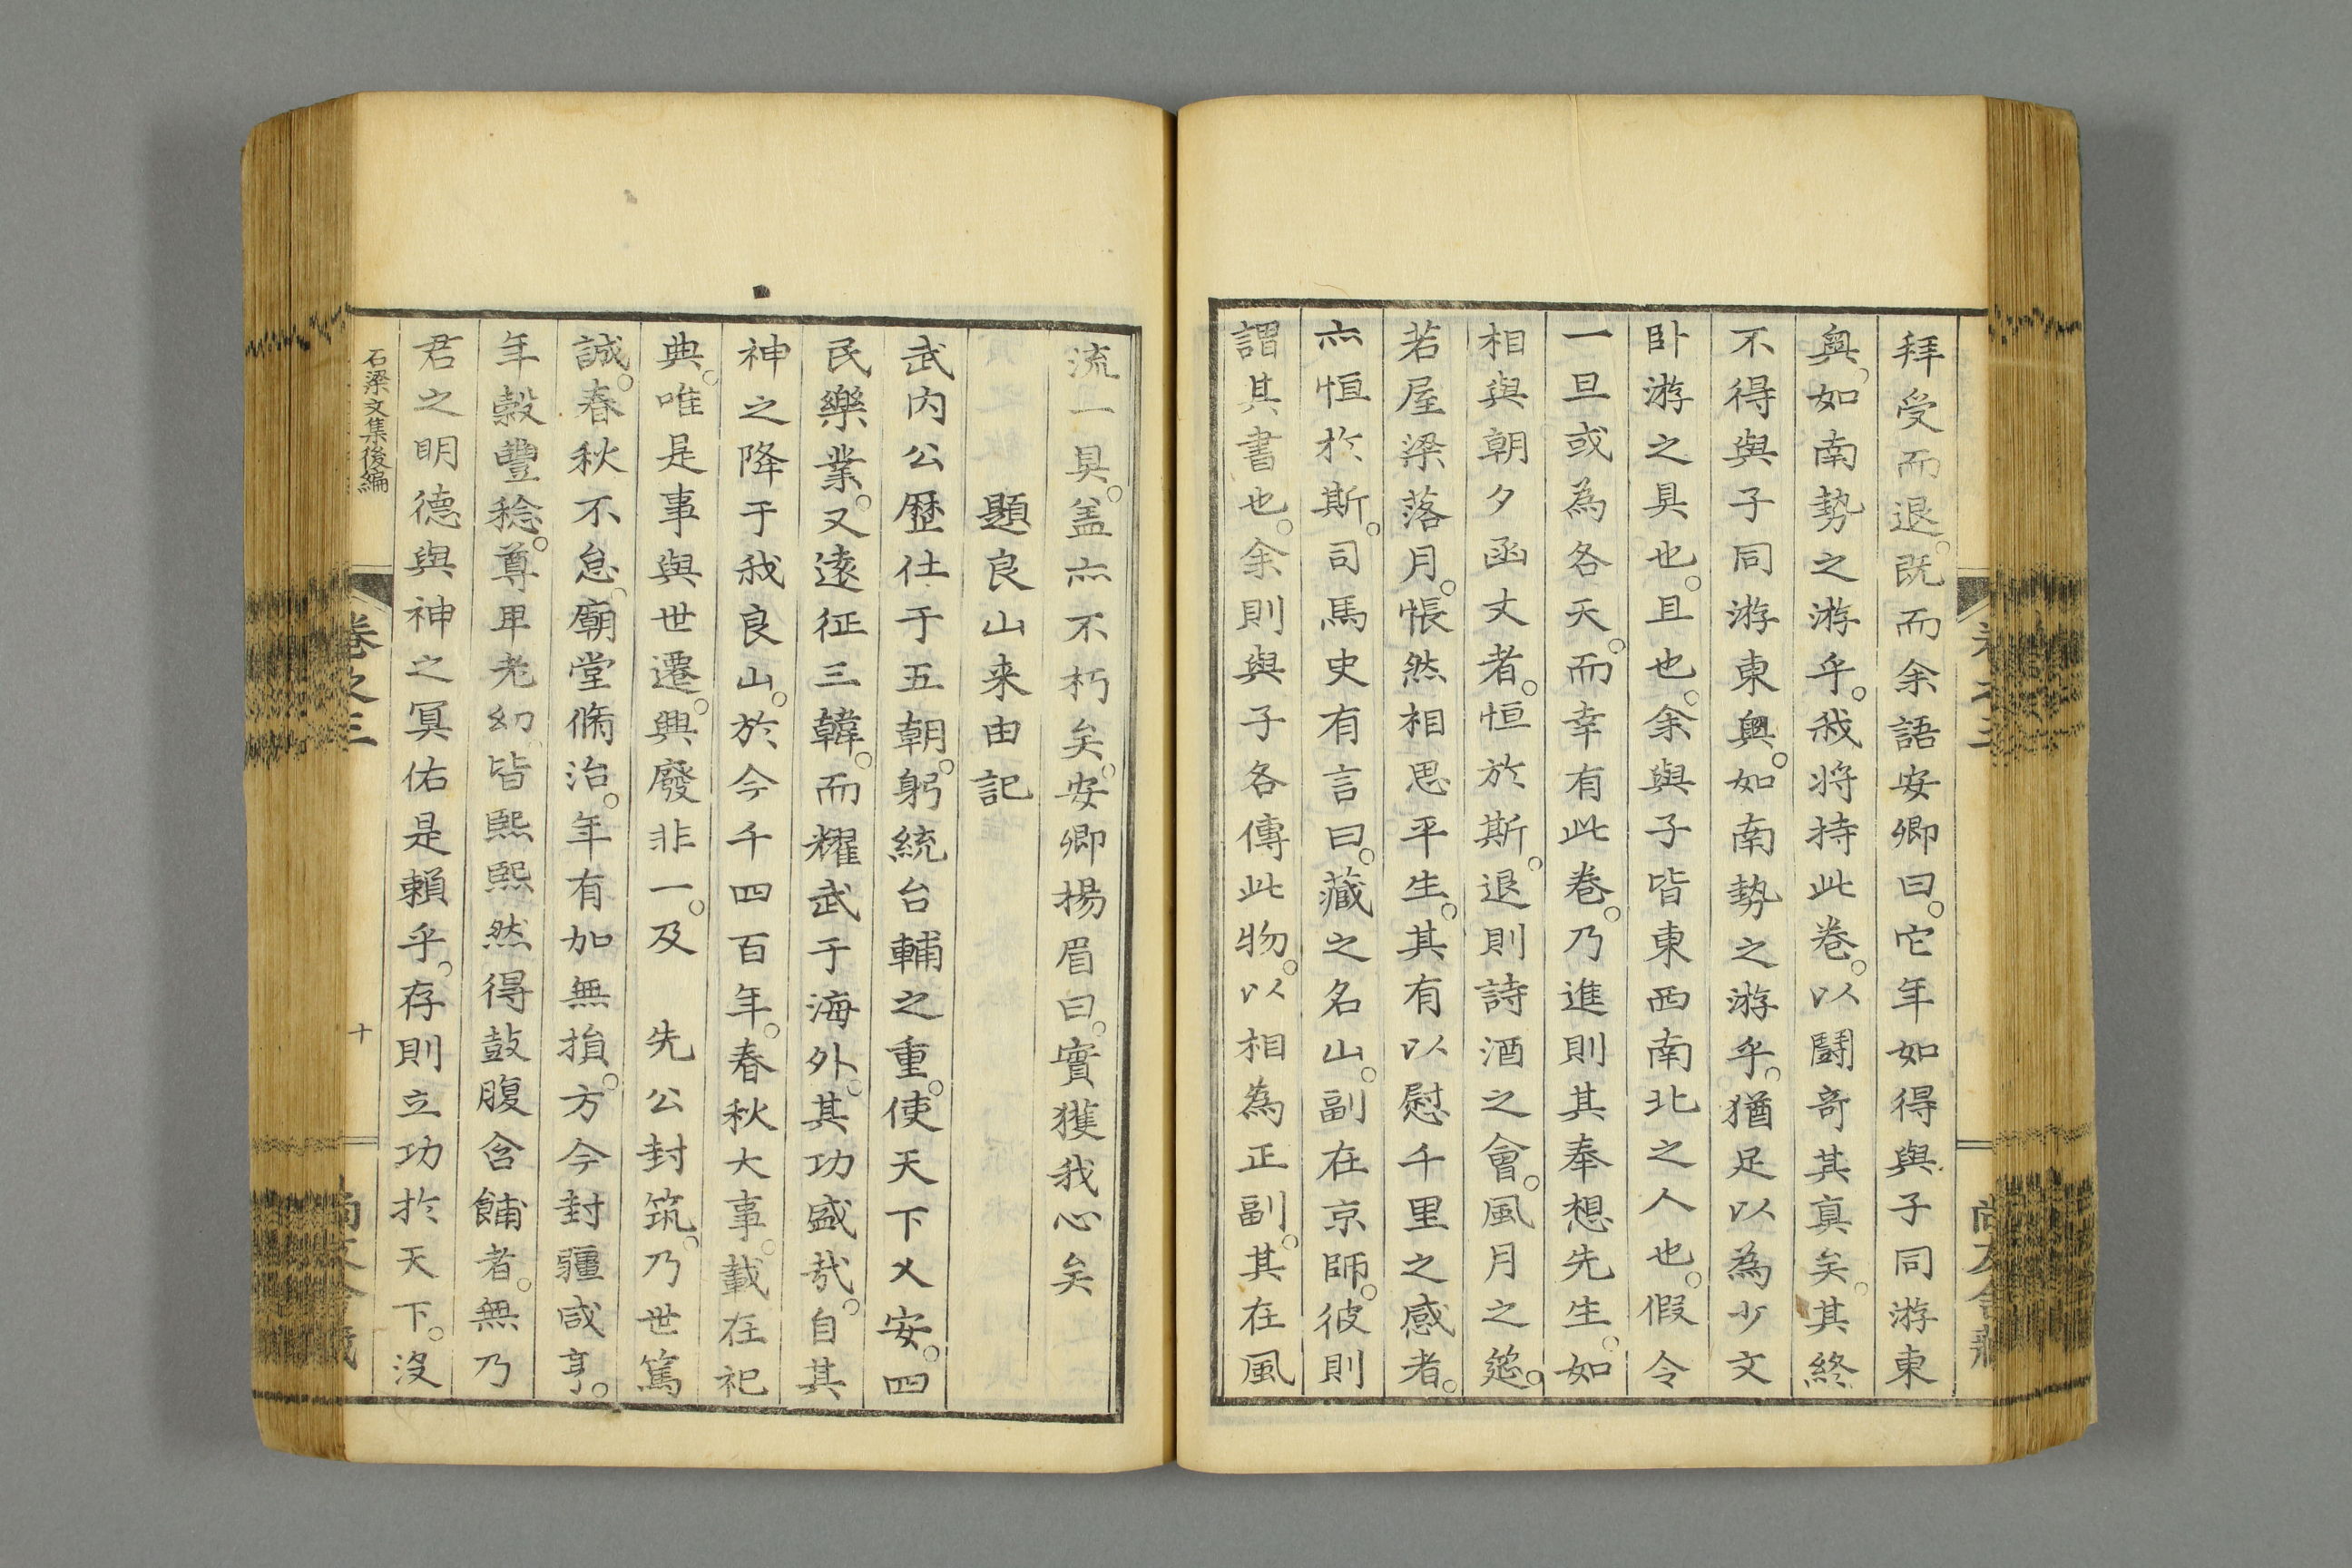 拜受而退。既而余語安卿曰。它年如得與子同游東
奥。如南勢之游乎。我将持此卷。以鬪竒其真矣。其終
不得與子同游東奥。如南勢之游乎。猶足以為少文
卧游之具也。且也。余與子皆東西南北之人也。假令
一旦或為各天。而幸有此卷。乃進則其奉想先生。如
相與朝夕函丈者。恒於斯。退則詩酒之會。風月之筵。
若屋梁落月。悵然相思平生。其有以慰千里之感者。
亦恒於斯。司馬史有言曰。藏之名山。副在京師。彼則
謂其書也。余則與子各傳此物。以相為正副。其在風
流一具。盖亦不朽矣。安卿揚眉曰。實獲我心矣
題良山来由記
武内公歷仕于五朝。躬統台輔之重。使天下乂安。四
民樂業。又遠征三韓。而耀武于海外。其功盛哉。自其
神之降于我良山。於今千四百年。春秋大事。載在祀
典。唯是事與世遷。興廢非一。及 先公封筑。乃世篤
誠。春秋不怠。廟堂脩治。年有加無損。方今封疆咸亨。
年穀豐稔。尊卑老幼。皆熙熙然得鼓腹含餔者。無乃
君之明德與神之冥佑是賴乎。存則立功於天下。沒
石梁文集後編
卷之三
十